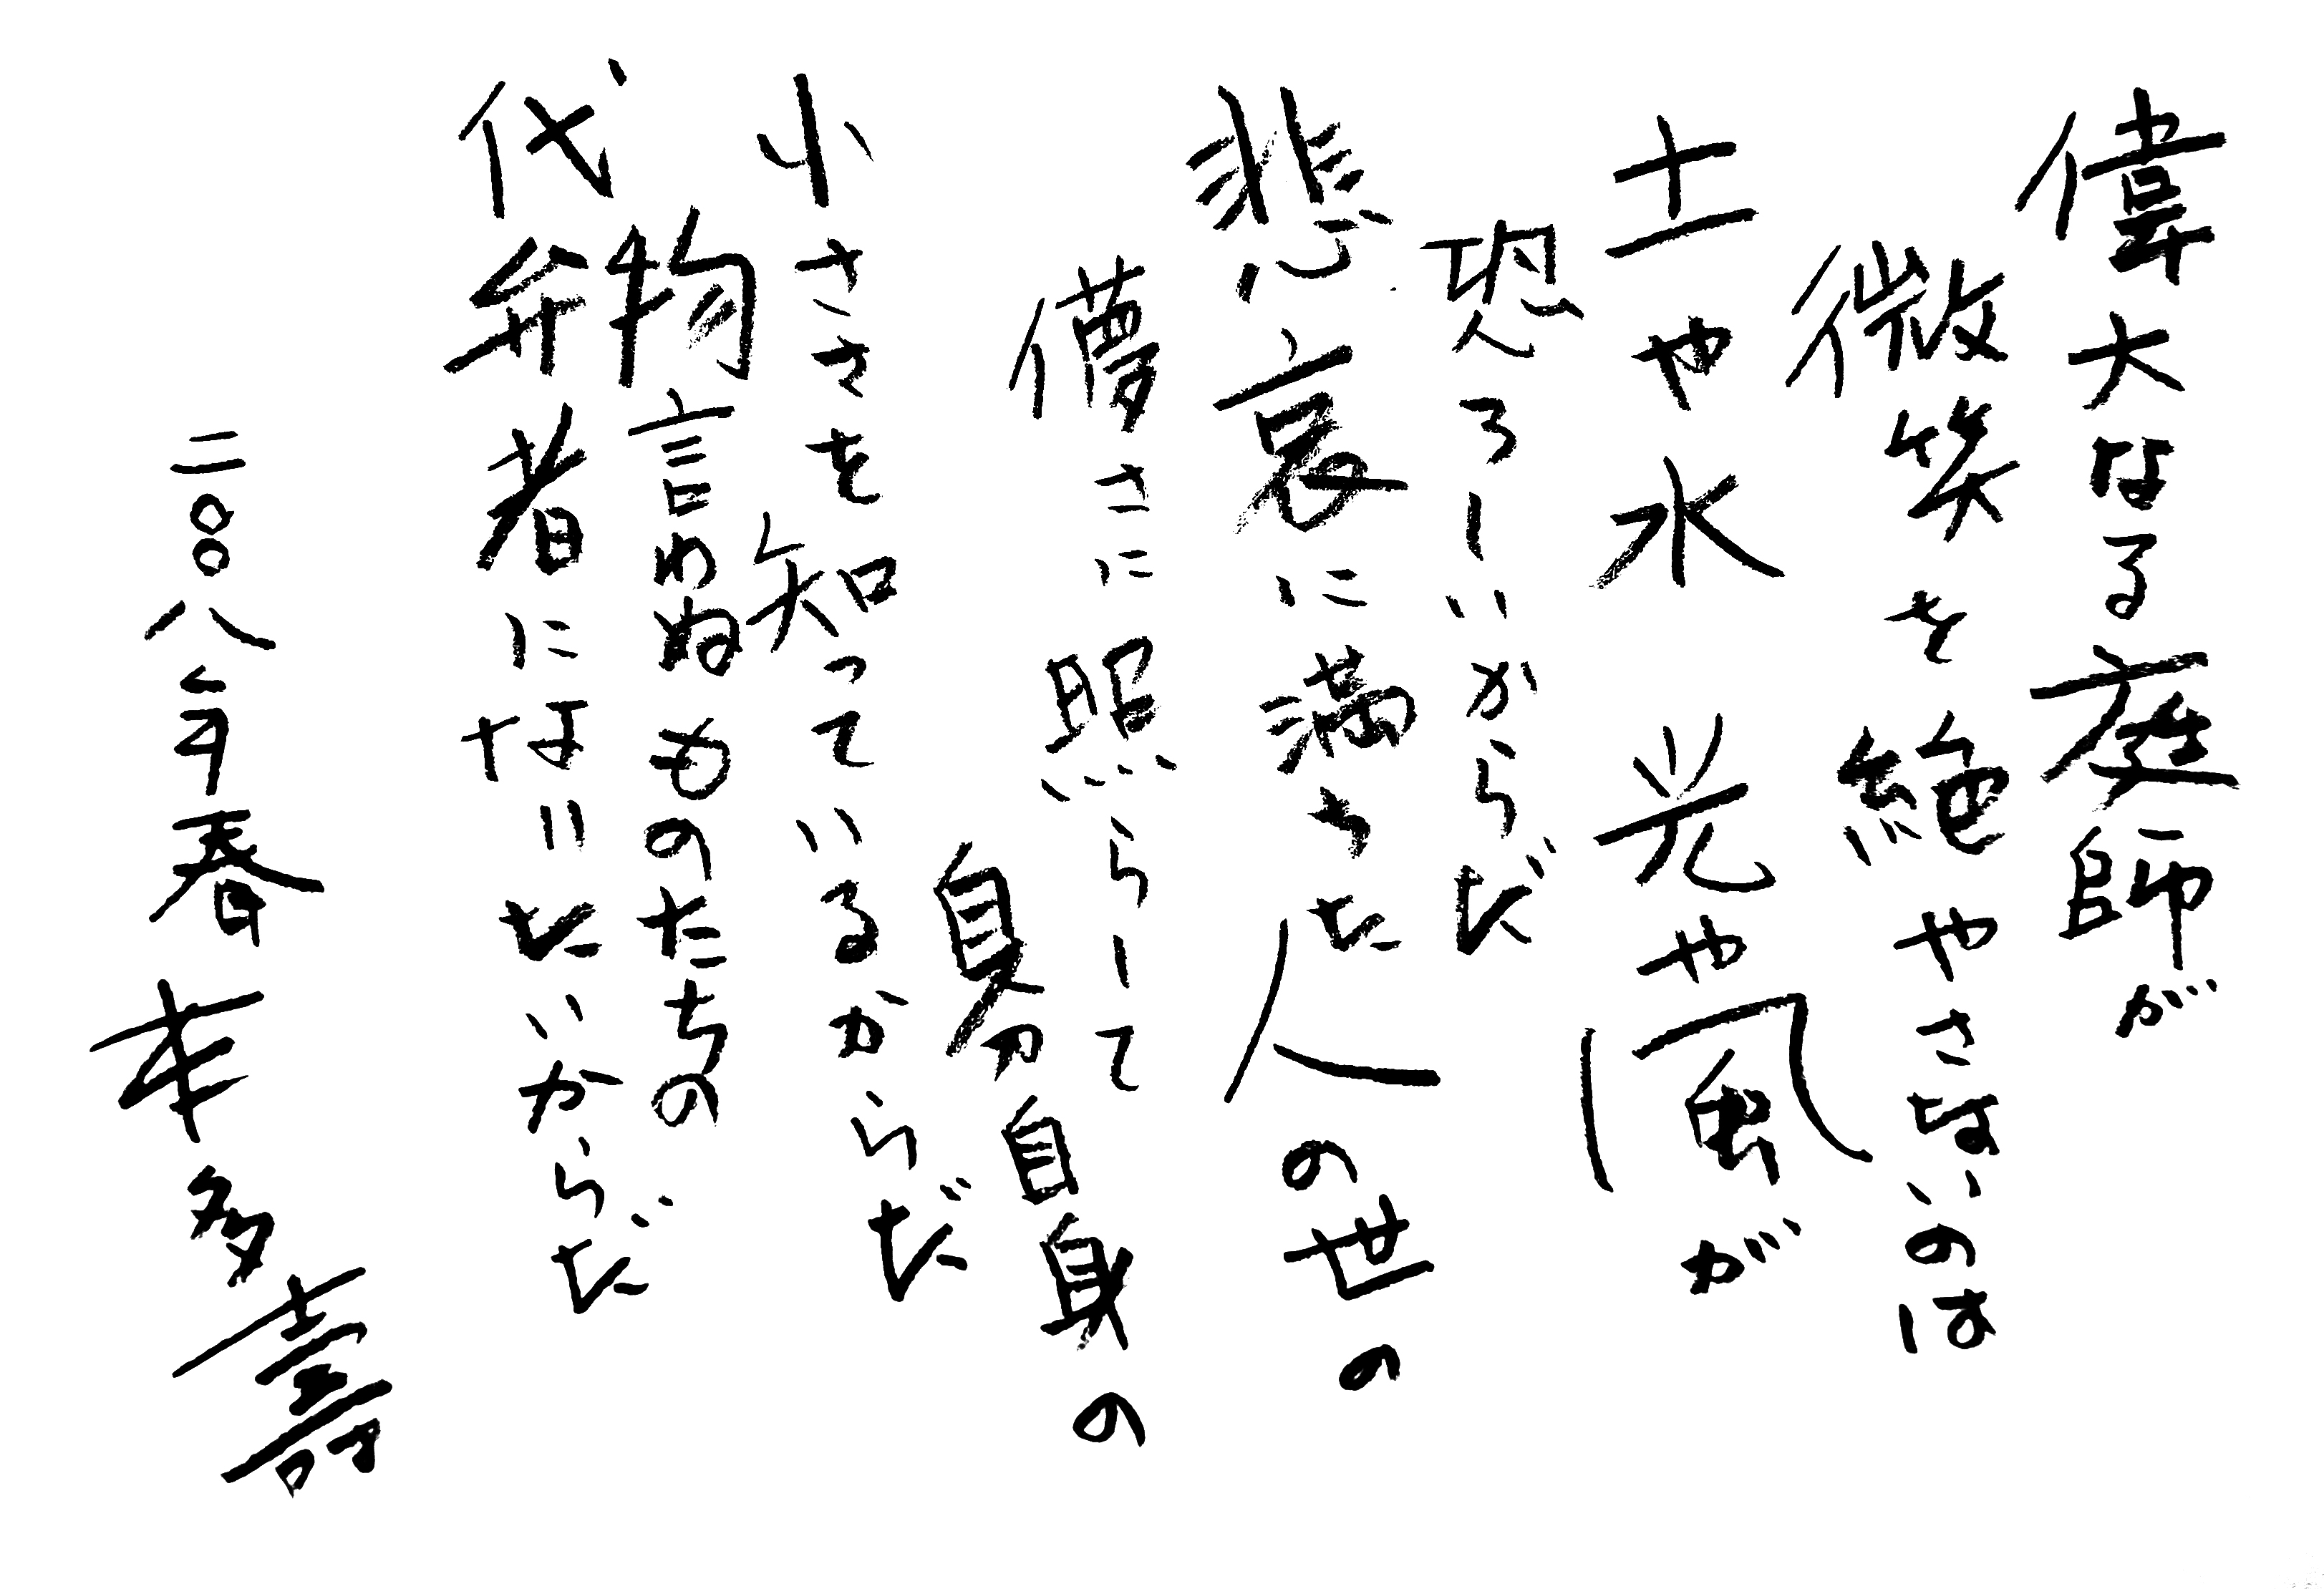 偉大なる庭師が
微笑を絶やさないのは
土や水 光や風が
恐ろしいからだ
悲哀に満ちた人の世の
儚さに照らして
身分自身の
小ささを知っているからだ
物言わぬものたちの
代弁者になりたいからだ
二〇〇八年春